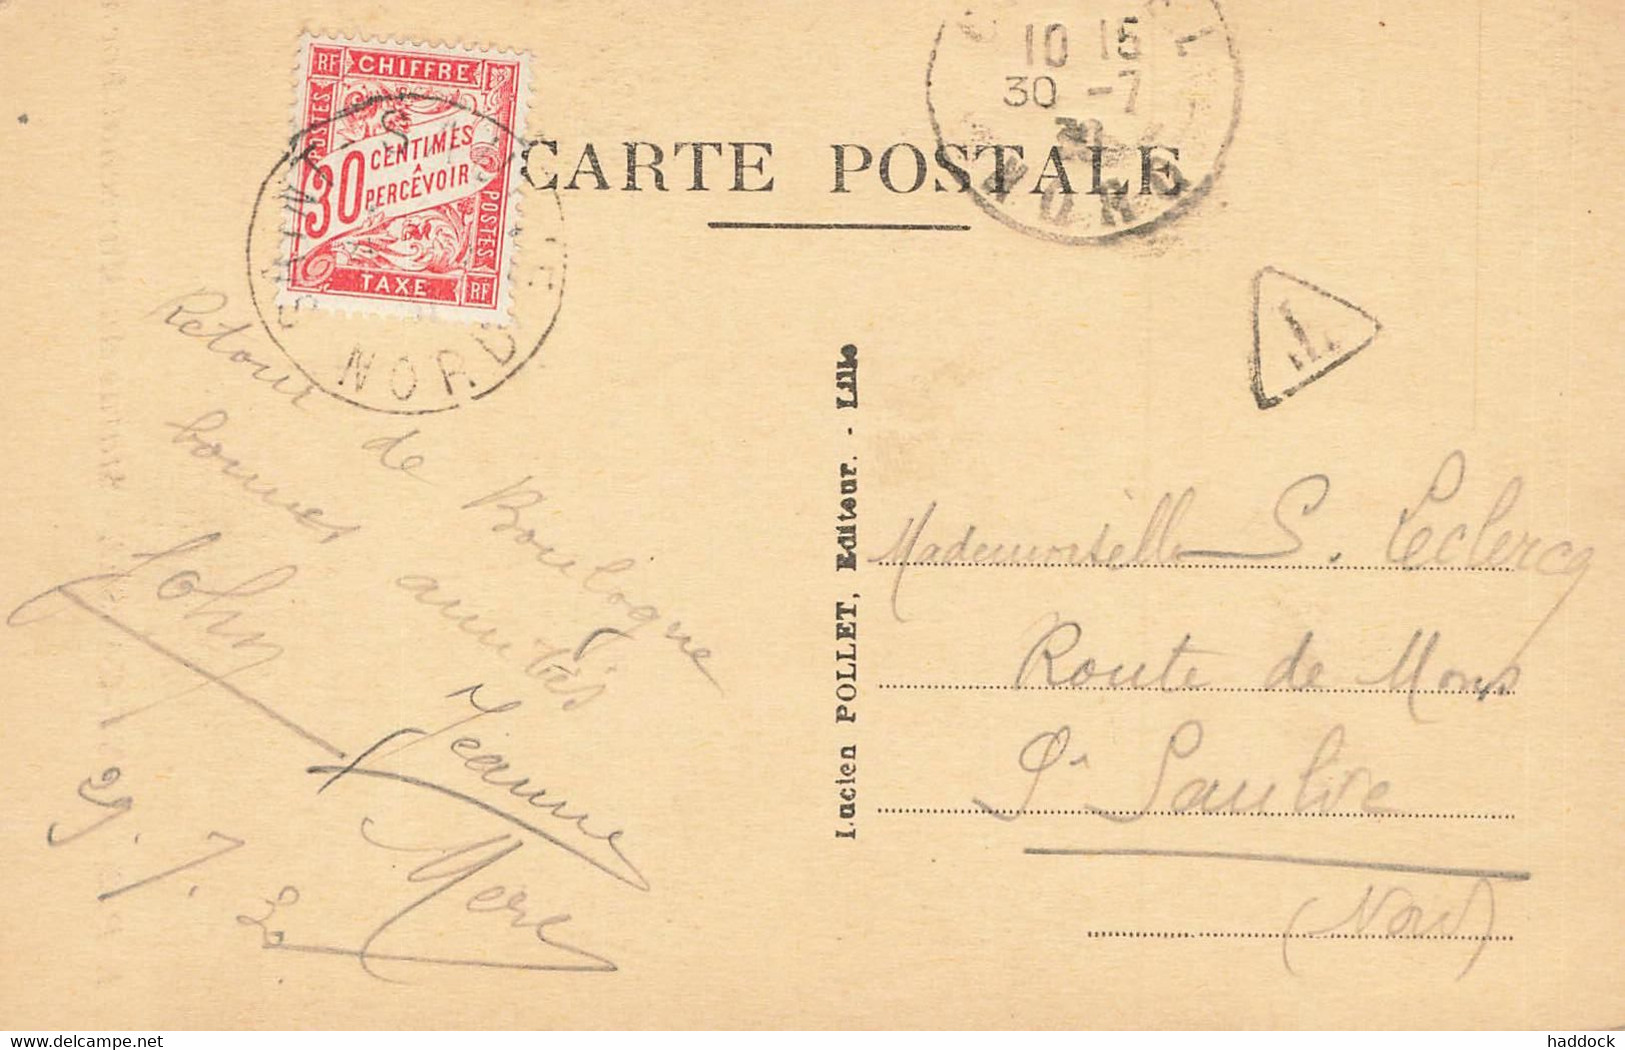 RF CHIFFRE
POSTES
30 CENTIMES
À
PERCEVOIR
POSTES
TAXE RF
SAINT-S
NORD
CARTE POSTALE
10 15
30 -7
30
NORD
T
Retour de Boulogne
bonnes amitiés
John
Jeanne
Mere
29.7.30
Lucien POLLET, Editeur. - Lille
Mademoiselle S. Leclercq
Route de Mons
St Saulve
(Nord)
www.delcampe.net
haddock